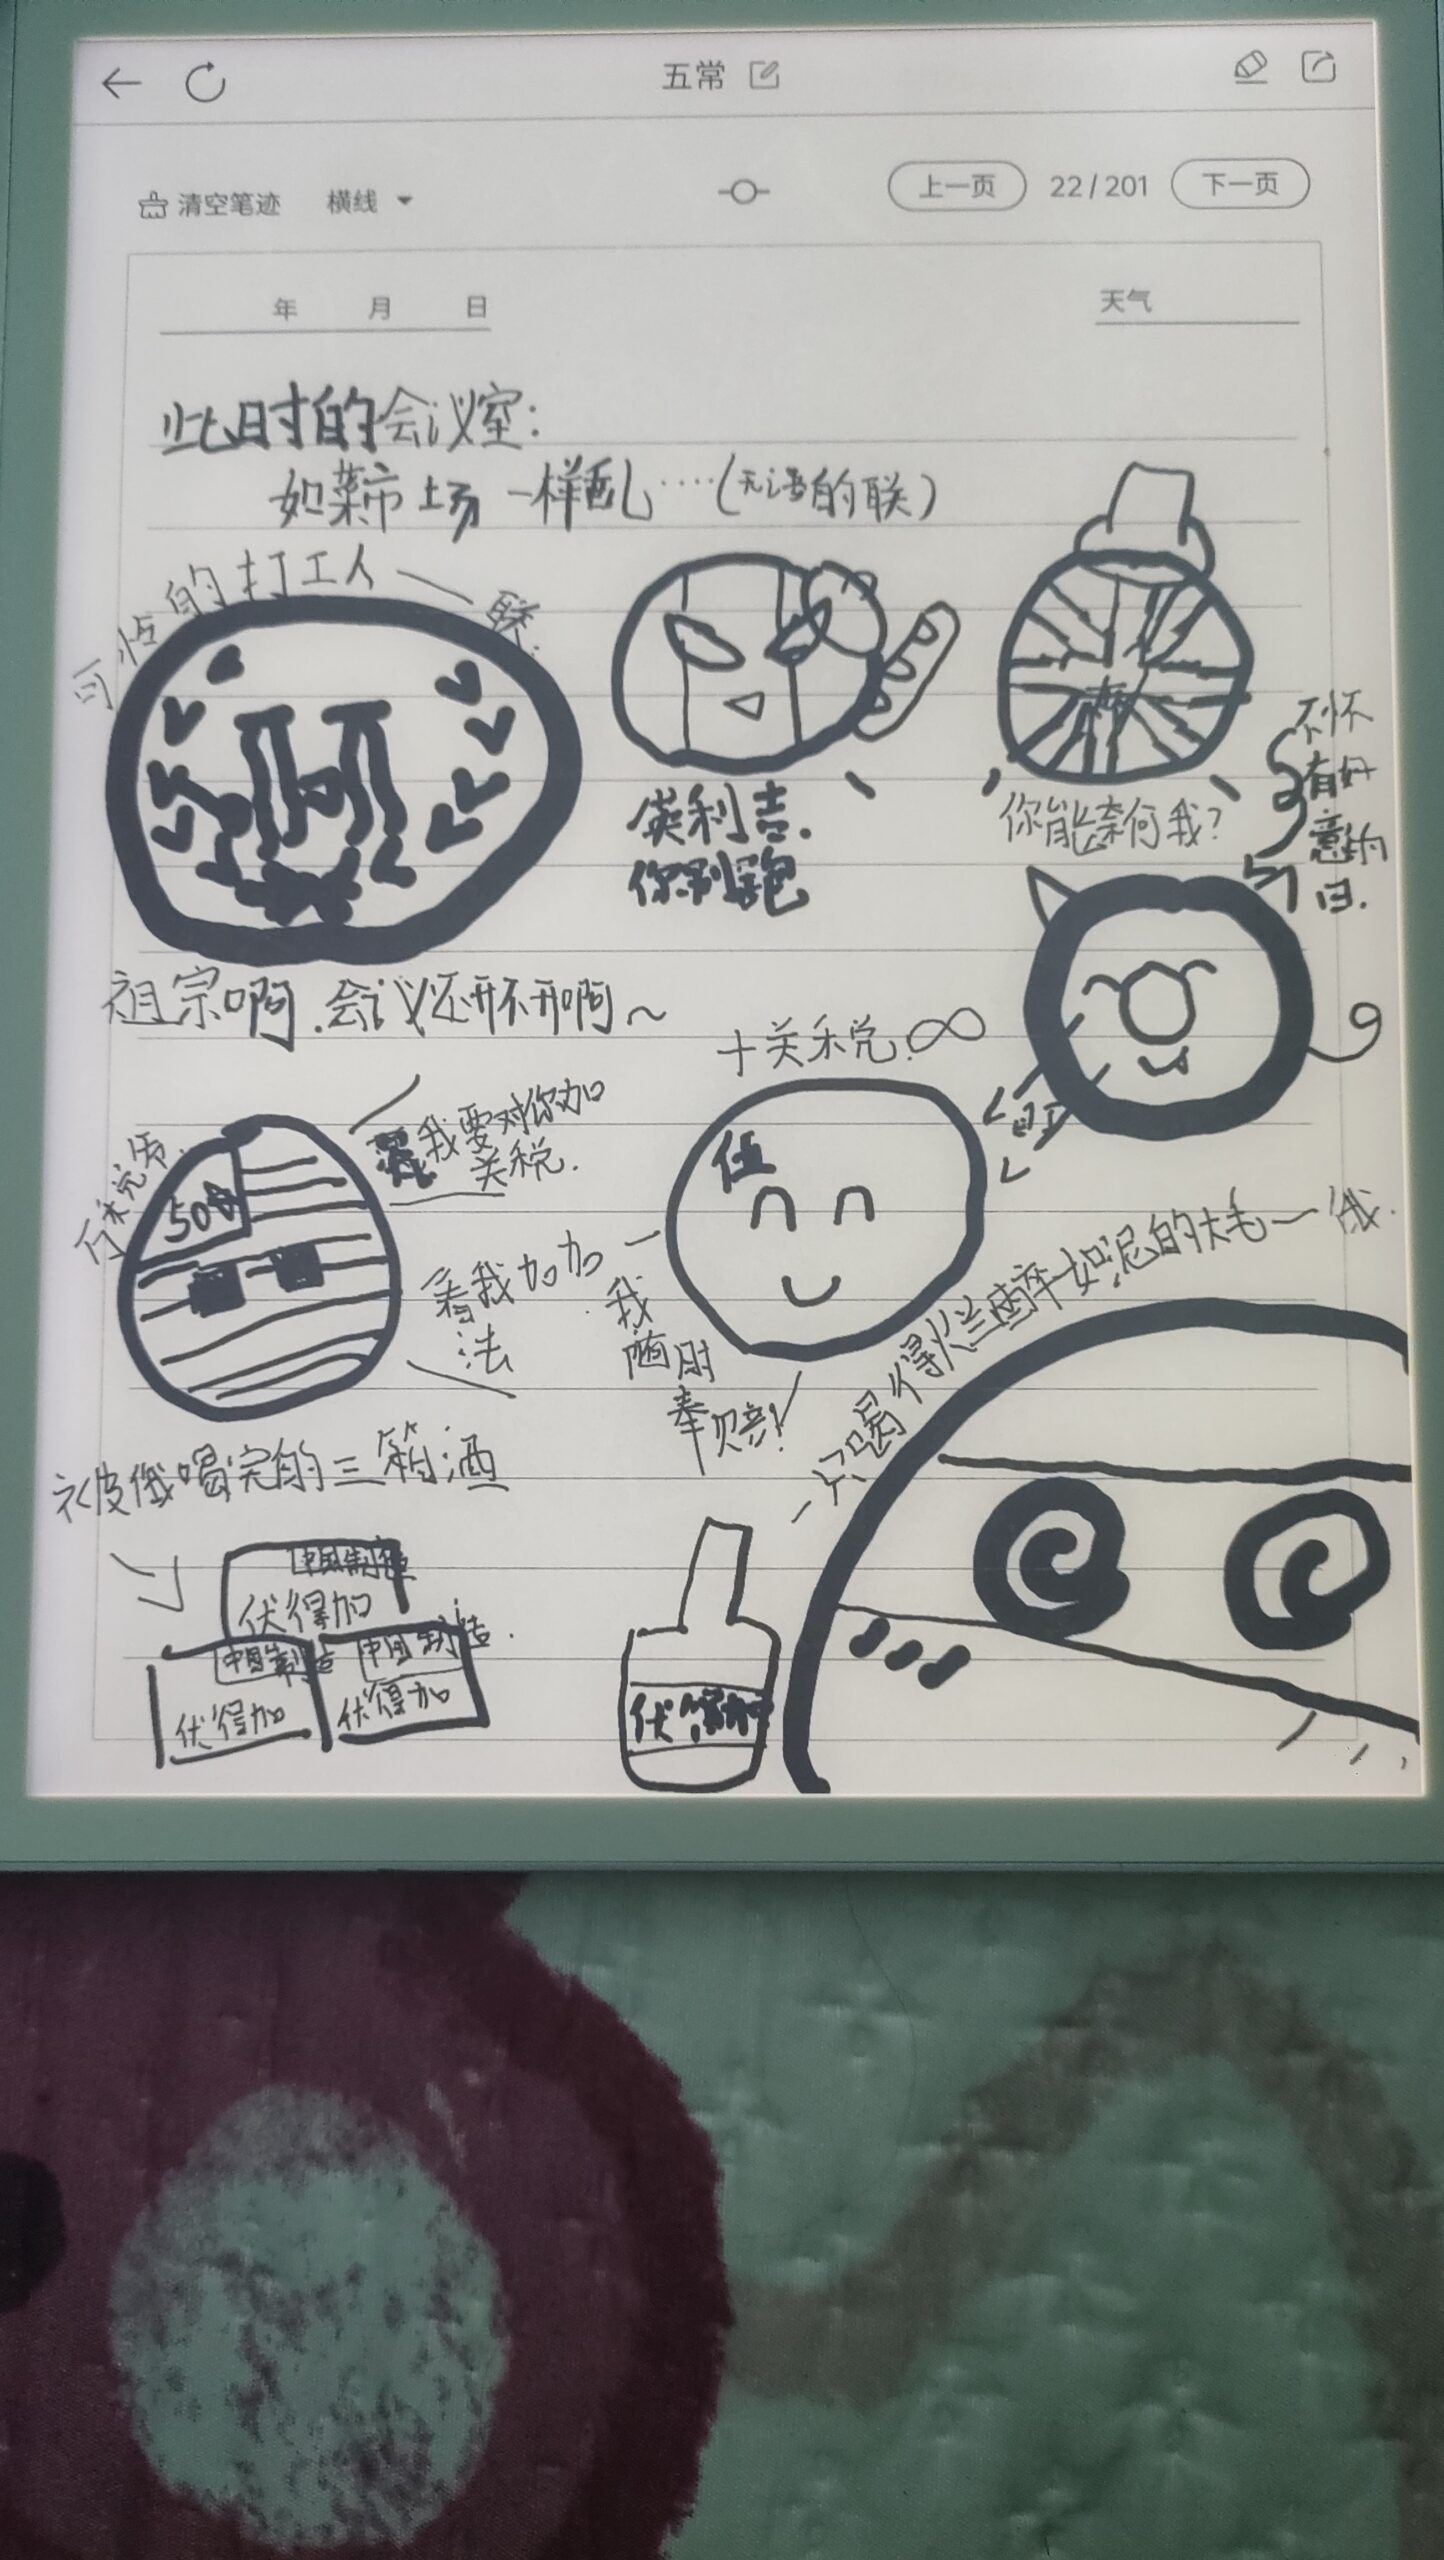 五常
清空笔迹 横线
上一页 22/201 下一页
年 月 日
天气
此时的会议室:
如菜市场一样乱……(无语的联)
的打工人——联:
英利吉.
你别跑
你能奈何我?
不怀
有好
意的
日.
祖宗啊.会议还开不开啊~
十关税.∞
我要对你加
关税.
50
伍
看我加加
法
我
随时
奉赔!
一只喝得烂醉如泥的大毛一俄.
被俄喝完的三箱酒
中国制造
伏得加
中国制造
伏得加
中国制造.
伏得加
伏得加